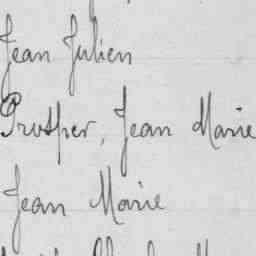 Jean Julien
Prosper, Jean Marie
Jean Marie